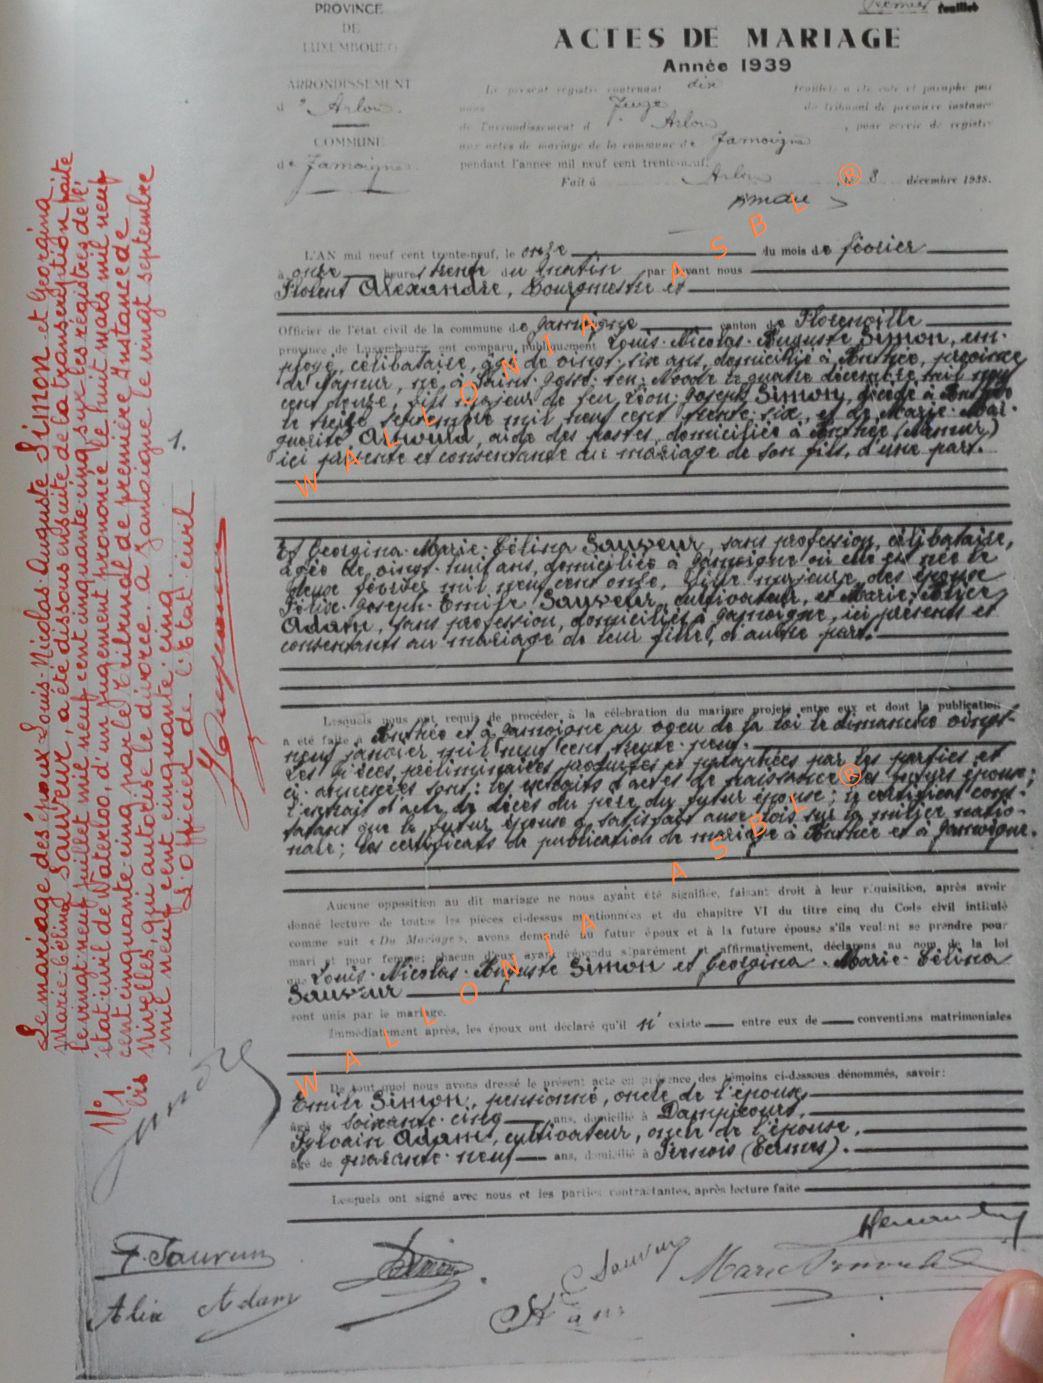 PROVINCE
DE
LUXEMBOURG
ARRONDISSEMENT
d' Arlon
COMMUNE
de Jamoigne
Premier feuillet
ACTES DE MARIAGE
Année 1939
Le présent registre contenant dix feuillets a été coté et paraphé par
nous Juge du tribunal de première instance
de l'arrondissement d' Arlon , pour servir de registre
aux actes de mariage de la commune de Jamoigne
pendant l'année mil neuf cent trente-neuf.
Fait à Arlon 8 décembre 1938.
L'AN mil neuf cent trente-neuf, le onze du mois de février
à onze heures trente du matin par devant nous
Florent Alexandre, Bourgmestre et
Officier de l'état civil de la commune de Jamoigne canton de Florenville
province de Luxembourg ont comparu publiquement Louis-Nicolas-Auguste Simon, em-
ployé, célibataire, âgé de vingt-six ans, domicilié à Anthée, province
de Namur, né à Saint-Josse-ten-Noode le quatre décembre mil neuf
cent douze, fils majeur de feu Léon-Joseph Simon, décédé à
le treize septembre mil neuf cent trente-six, et de Marie-Mar-
guerite Arnould, aide des postes, domiciliée à Anthée (Namur)
ici présente et consentante au mariage de son fils, d'une part.
Et Georgina-Marie-Célina Sauveur, sans profession, célibataire,
âgée de vingt-huit ans, domiciliée à Jamoigne où elle est née le
février mil neuf cent onze, fille majeure des époux
Félix-Joseph-Emile Sauveur, cultivateur, et Marie-
Adam, sans profession, domiciliés à Jamoigne, ici présents et
consentants au mariage de leur fille, d'autre part.
Lesquels nous ont requis de procéder à la célébration du mariage projeté entre eux et dont la publication
a été faite à Anthée et à Jamoigne au voeu de la loi le dimanche vingt-
neuf janvier mil neuf cent trente-neuf.
Les pièces préliminaires produites et paraphées par les parties et
ci-annexées sont: les extraits d'actes de naissance des futurs époux;
l'extrait d'acte de décès du père du futur époux; le certificat cons-
tatant que le futur époux a satisfait aux lois sur la milice natio-
nale; les certificats de publication de mariage à Anthée et à Jamoigne.
Aucune opposition au dit mariage ne nous ayant été signifiée, faisant droit à leur réquisition, après avoir
donné lecture de toutes les pièces ci-dessus mentionnées et du chapitre VI du titre cinq du Code civil intitulé
comme suit « Du Mariage », avons demandé au futur époux et à la future épouse s'ils veulent se prendre pour
mari et pour femme; chacun d'eux ayant répondu séparément et affirmativement, déclarons au nom de la loi
que Louis-Nicolas-Auguste Simon et Georgina-Marie-Célina
Sauveur
sont unis par le mariage.
Immédiatement après, les époux ont déclaré qu'il n' existe entre eux de conventions matrimoniales
De tout quoi nous avons dressé le présent acte en présence des témoins ci-dessous dénommés, savoir:
Emile Simon, pensionné, oncle de l'époux
âgé de soixante-cinq ans, domicilié à Dampicourt,
Sylvain Adam, cultivateur, oncle de l'épouse,
âgé de quarante-neuf ans, domicilié à Pernois (Termes).
Lesquels ont signé avec nous et les parties contractantes, après lecture faite
F. Sauveur
Alix Adam
G Sauveur
Marie Arnould
1.
N° 1
bis
Le mariage des époux Louis-Nicolas-Auguste Simon et Georgina
Marie-Célina Sauveur, a été dissous ensuite de la transcription faite
le vingt-neuf juillet mil neuf cent cinquante-cinq sur les registres de l'
état civil de Waterloo, d'un jugement prononcé le huit mars mil neuf
cent cinquante-cinq par le Tribunal de première Instance de
Nivelles, qui autorise le divorce. A Jamoigne le vingt septembre
mil neuf cent cinquante-cinq
L'officier de l'Etat civil
WALLONIA ASBL ®
WALLONIA ASBL ®